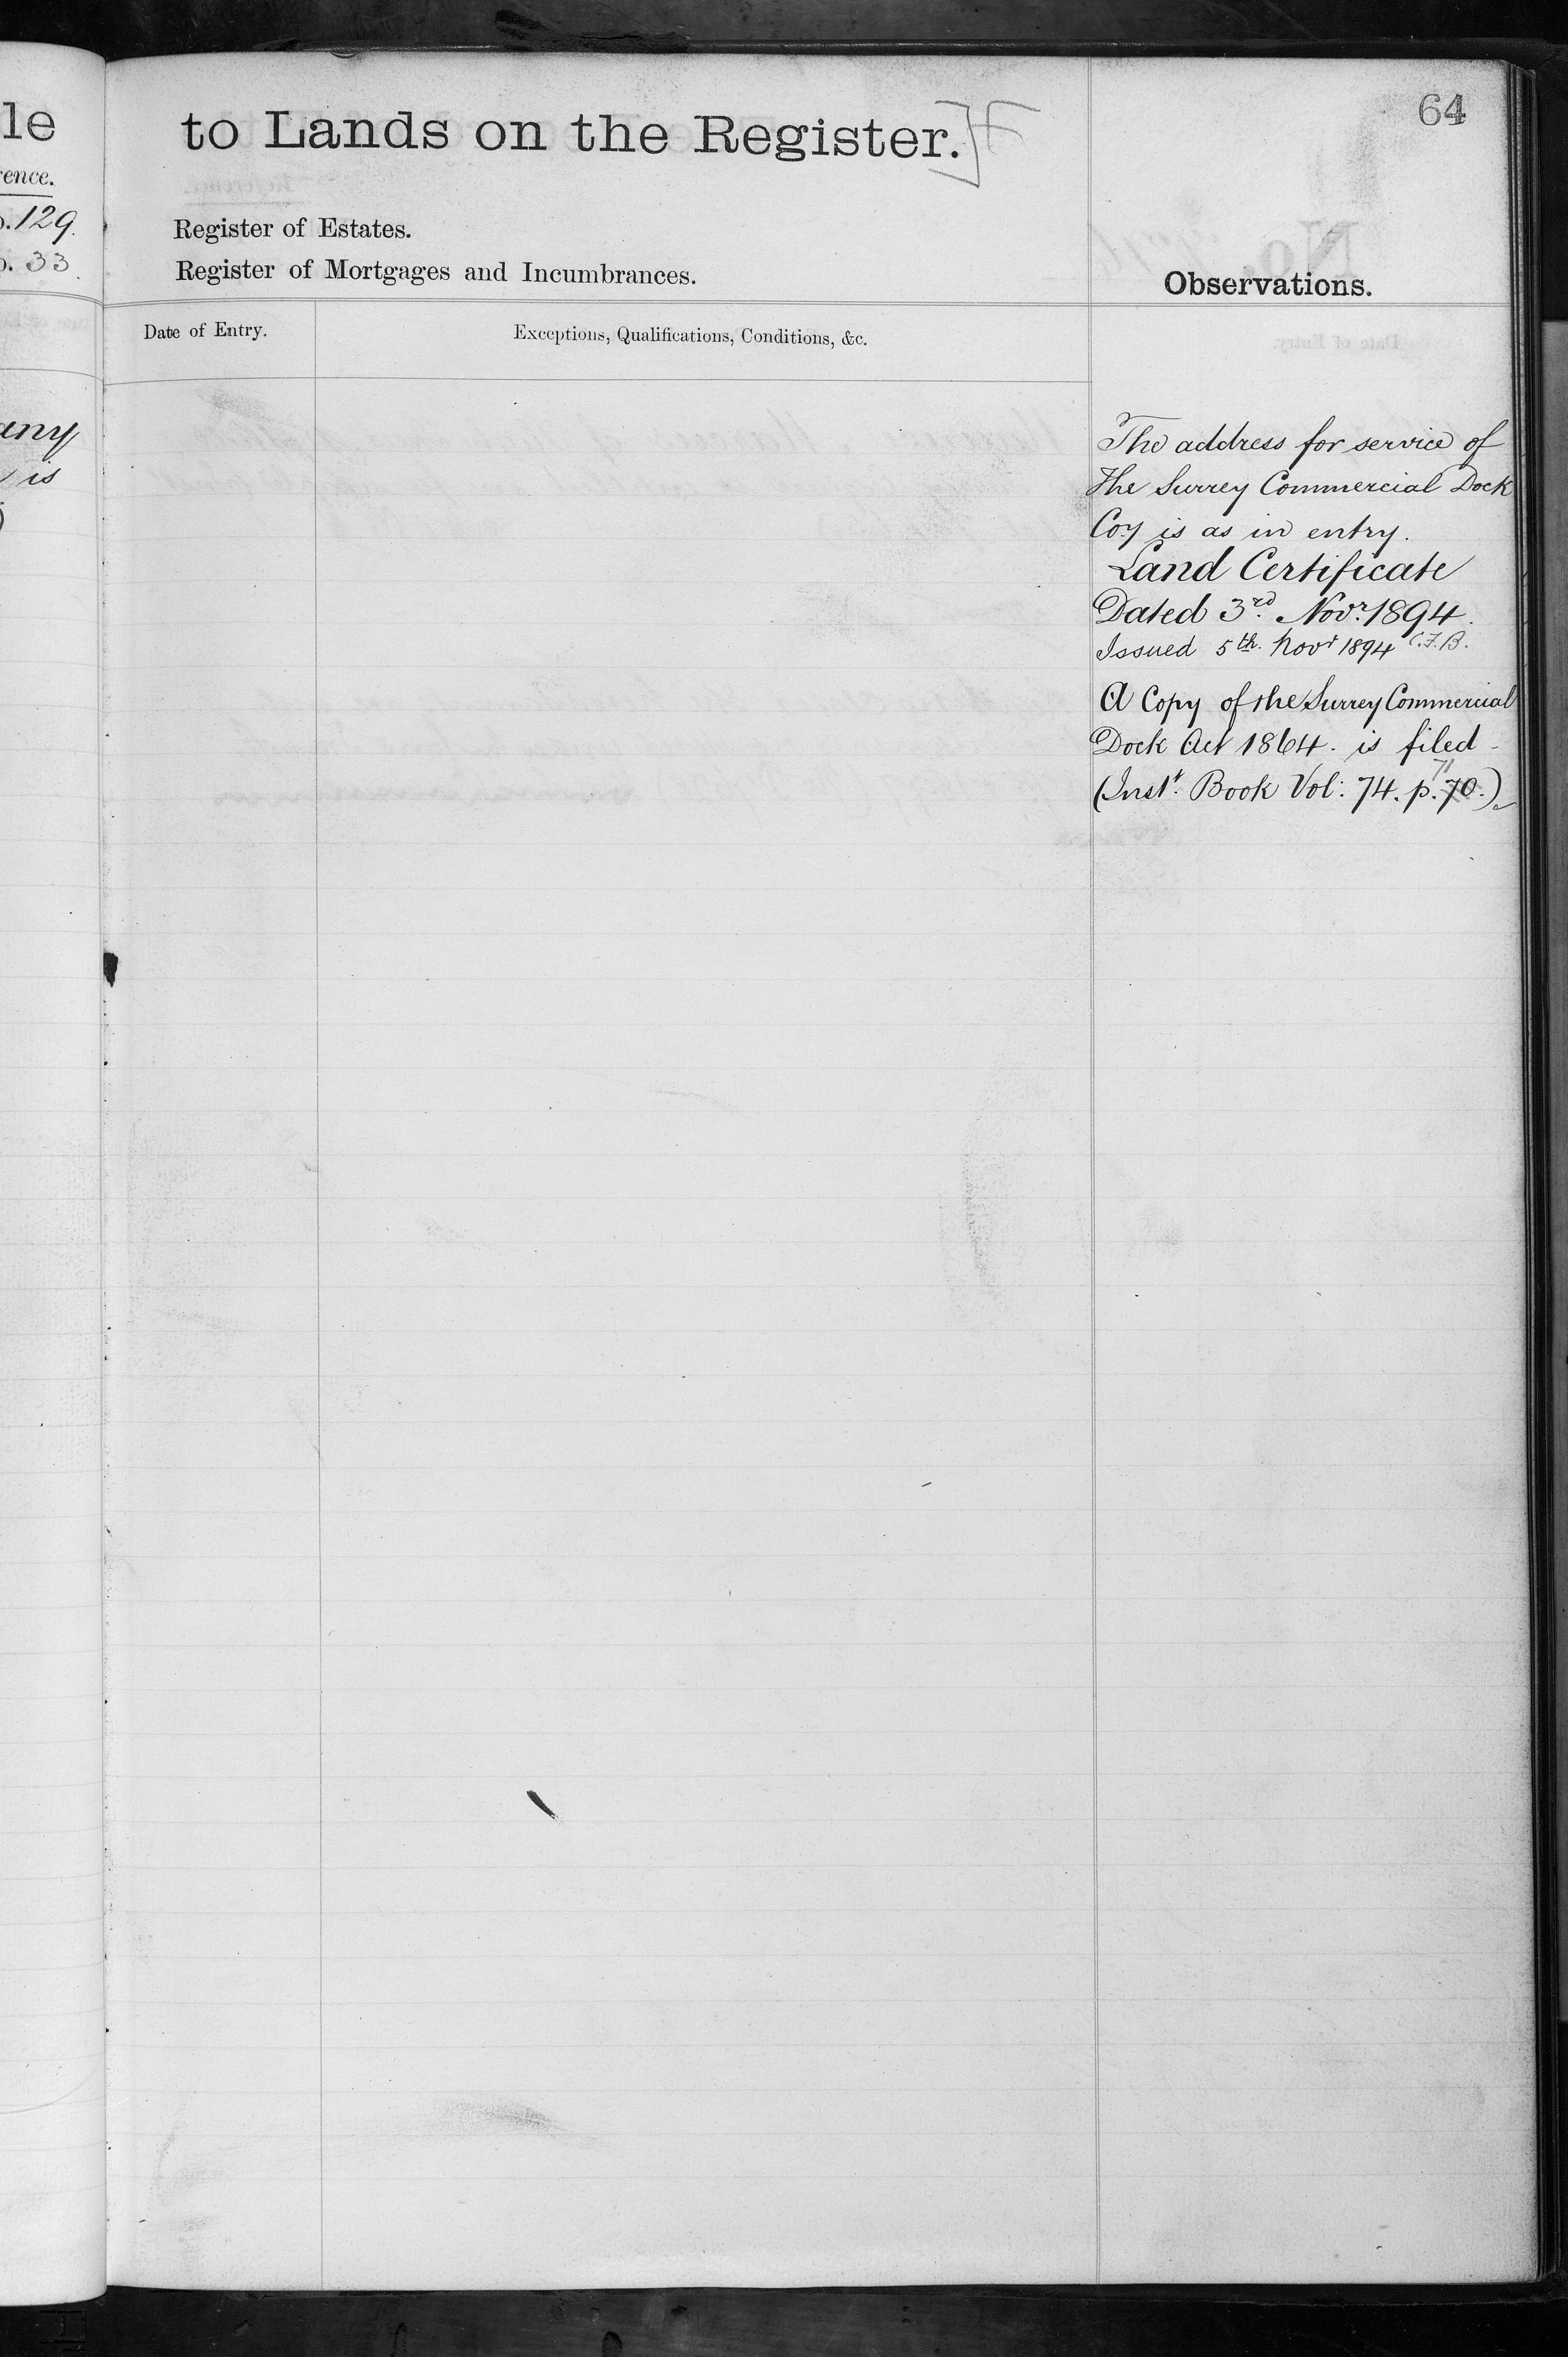 64
le
to Lands on the Register.
ence.
Register of Estates.
129.
Register of Mortgages and Incumbrances.
33.
Observations.
Date of Entry.
Exceptions, Qualifications, Conditions, &c.
any
is
The address for service of
The Surrey Commercial Dock
Coy is as in entry.
Land Certificate
Dated 3rd. Novr. 1894.
Issued 5th. Novr 1894 C.F.B.
A Copy of the Surrey Commercial
Dock Act 1864. is filed -
(Inst. Book Vol: 74. p. 70.) 71